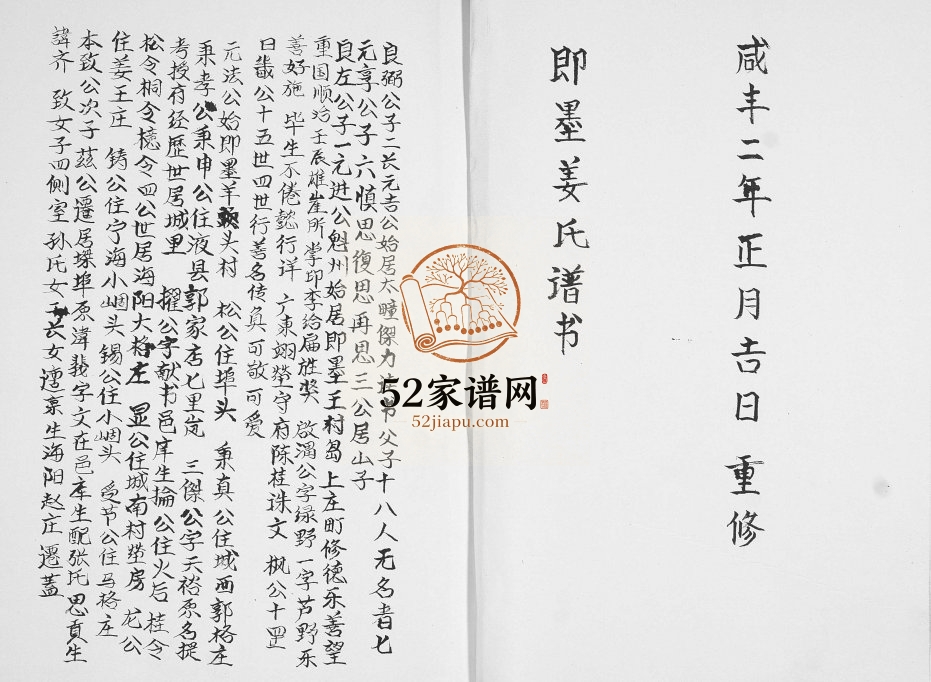 咸丰二年正月吉日 重修
即墨姜氏谱书
良弼公子二长元吉公始居太疃傑力 父子十八人无名者七
元享公子六慎思復思再思三公居山子
良左公子一元进公魁州始居即墨王村岛 上庄町修德乐善望
重国顺治壬辰雄崖所掌印李给届胜奖 啟涓公字绿野一字芦野乐
善好施 毕生不倦懿行详 广东翊莹守府陈桂诛文 枫公十
曰 公十五世四世行善名传真可敬可爱
元法公始即墨羊 头村 松公住埠头 秉真公住城西郭格庄
秉孝公秉申公住液县郭家店七里岚 三傑公字天裕原名提
考授府经歷世居城里 擢公字献书邑庠生掄公住火后 桂令
松令桐令檍令四公世居海阳大格庄 显公住城南村莹房 龙公
住姜王庄 铸公住宁海小崓头锡公住小崓头 受节公住马格庄
本致公次子兹公遷居垛埠原諱 字文在邑庠生配张氏思貢生
諱齐 致女子四侧室孙氏女 长女遭 生海阳赵庄 遷蓋
52家谱网
52jiapu.com